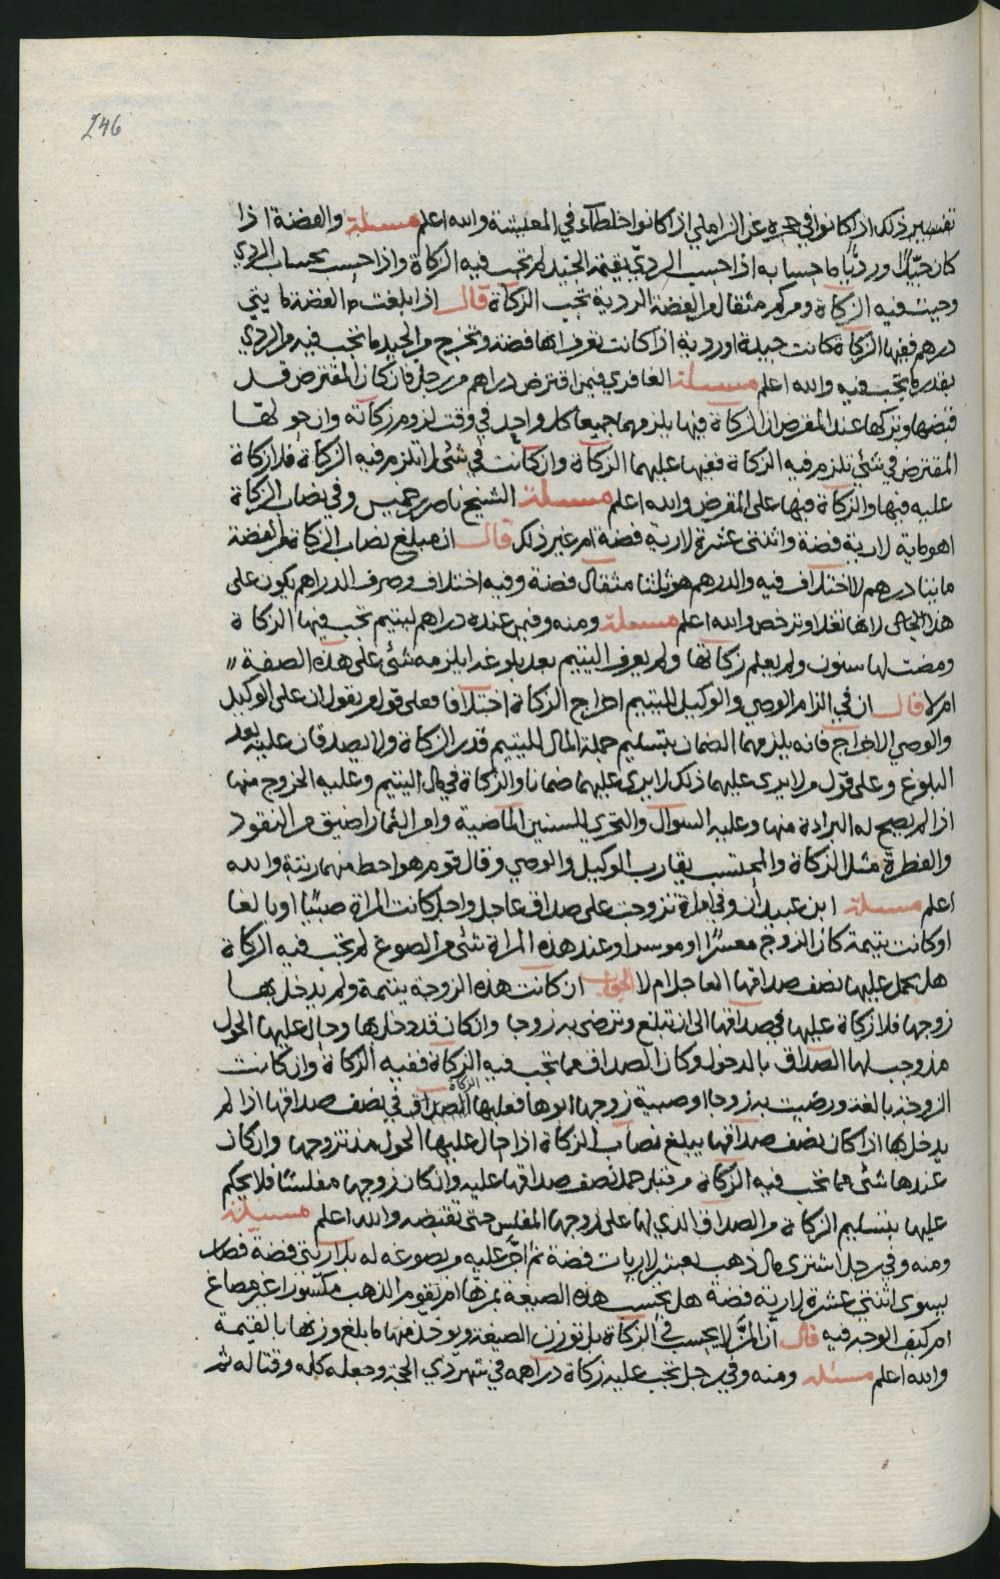 246
تفسير ذلك اذا كانوا في حجره عن الزاملي اذا كانوا خلطآء في المعيشة والله اعلم مسئلة والفضة اذا
كان جيدا ورديا ما حسابه اذا حسب الردي بقيمة الجيد لم تجب فيه الزكاة واذا حسب بحساب الردي
وجبت فيه الزكاة وكم مثقال من الفضة الردية تجب الزكاة قال اذا بلغت من الفضة مايتي
درهم ففيها الزكاة كانت جيدة او ردية اذا كانت تعرف انها فضة وتخرج من الجيد ما تجب فيه ومن الردي
بقدر ما تجب فيه والله اعلم مسئلة الغافري فيمن اقترض دراهم من رجل فان كان المقترض قد
قبضها وتركها عند المقرض ان الزكاة فيها يلزمهما جميعا كل واحد في وقت لزوم زكاته وان حولها
المقترض في شئ تلزم فيه الزكاة ففيها عليهما الزكاة وان كانت في شئ لا تلزم فيه الزكاة فلا زكاة
عليه فيها والزكاة فيها على المقرض والله اعلم مسئلة الشيخ ناصر بن خميس وفي نصاب الزكاة
اهو ماية لارية فضة واثنتى عشرة لارية فضة ام غير ذلك قال ان مبلغ نصاب الزكاة من الفضة
مايتا درهم لا اختلاف فيه والدرهم هو ثلثا مثقال فضة وفيه اختلاف وصرف الدراهم يكون على
هذا الحال لانها تغلا وترخص والله اعلم مسئلة ومنه وفيمن عنده دراهم ليتيم تجب فيها الزكاة
ومضت لها سنون ولم يعلم زكاتها ولم يعرف اليتيم بعد بلوغه ايلزمه شئ على هذه الصفة
ام لا قال ان في الزام الوصي والوكيل لليتيم اخراج الزكاة اختلافا فعلى قول من يقول ان على الوكيل
والوصي الاخراج فانه يلزمهما الضمان بتسليم جملة المال لليتيم قدر الزكاة ولا يصدقان عليه بعد
البلوغ وعلى قول من لا يرى عليهما ذلك لا يرى عليهما ضمانا والزكاة في مال اليتيم وعليه الخروج منها
اذا لم يصح له البرادة منها وعليه السوال والتحري للسنين الماضية وامر الثمار اضيق من النقود
والفطرة مثل الزكاة والمحتسب يقارب الوكيل والوصي وقال قوم هو احط منهما رتبة والله
اعلم مسئلة ابن عبيدان وفي امراة تزوجت على صداق عاجل واجل كانت المراة صبيا او بالغا
او كانت يتيمة كان الزوج معسرا او موسرا وعند هذه المراة شئ من الصوغ لم تجب فيه الزكاة
هل يحمل عليها نصف صداقها العاجل ام لا الجواب ان كانت هذه الزوجة يتيمة ولم يدخل بها
زوجها فلا زكاة عليها في صداقها الى ان تبلغ وترضى به زوجا وان كان قد دخل بها وحال عليها الحول
مذ وجب لها الصداق بالدخول وكان الصداق مما تجب فيه الزكاة ففيه الزكاة وان كانت
الزوجة بالغة ورضيت به زوجا او صبية زوجها ابوها فعليها الزكاة في نصف صداقها اذا لم
يدخل بها اذا كان نصف صداقها يبلغ نصاب الزكاة اذا حال عليها الحول مذ تزوجها وان كان
عندها شئ مما تجب فيه الزكاة من قبل حمل نصف صداقها عليه وان كان زوجها مفلسا فلا يحكم
عليها بتسليم الزكاة من الصداق الذي لها على زوجها المفلس حتى تقبضه والله اعلم مسئلة
ومنه وفي رجل اشترى مال ذهب بعشر لاريات فضة ثم اجر عليه من يصوغه له بلاريتى فضة فصار
يسوى اثنتى عشرة لارية فضة هل يحسب هذه الصيغة بمزها ام يقوم الذهب مكسورا غير مصاغ
ام كيف الوجه فيه قال ان المز لا يحسب في الزكاة بل توزن الصيغة ويوخذ منها ما بلغ وزنها بالقيمة
والله اعلم مسئله ومنه وفي رجل تجب عليه زكاة دراهمه في شهر ذي الحجة وجعله كله وقتا له ثم